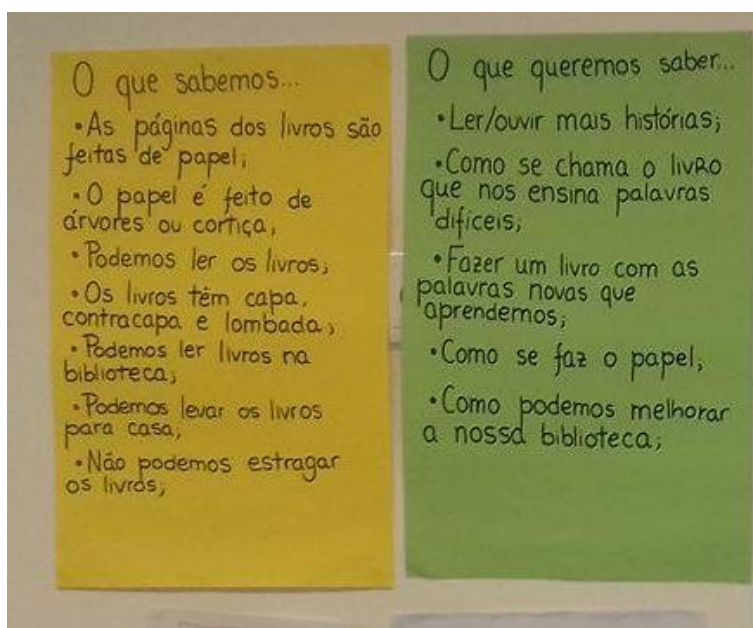 O que sabemos...
•As páginas dos livros são
feitas de papel;
•O papel é feito de
árvores ou cortiça;
•Podemos ler os livros;
•Os livros têm capa,
contracapa e lombada;
•Podemos ler livros na
biblioteca;
•Podemos levar os livros
para casa;
•Não podemos estragar
os livros;
O que queremos saber...
•Ler/ouvir mais histórias;
•Como se chama o livRo
que nos ensina palavras
difíceis;
•Fazer um livro com as
palavras novas que
aprendemos;
•Como se faz o papel;
•Como podemos melhorar
a nossa biblioteca;